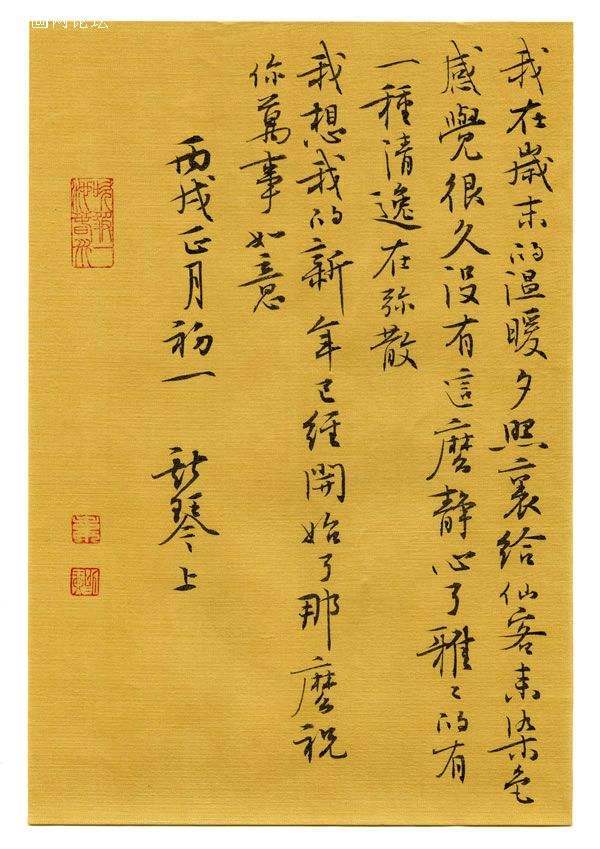 网论坛
我在歲末的温暖夕照裏給仙客來染
感覺很久没有這麼靜心了雅〻的有
一種清逸在弥散
我想我的新年已經開始了那麼祝
你萬事如意
丙戌正月初一 琴上